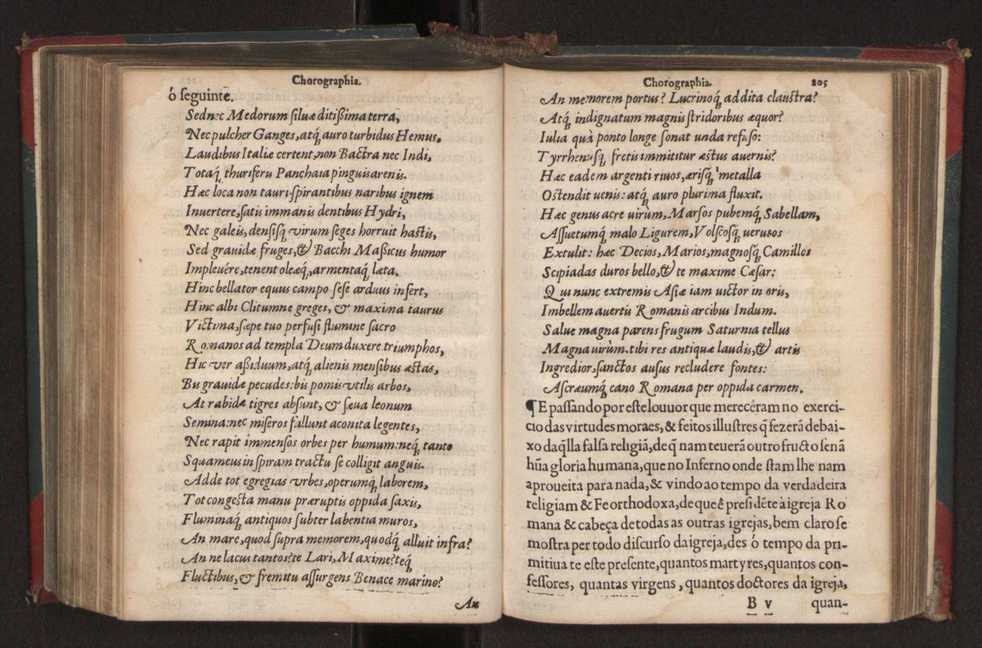 Chorographia.
ó seguintẽ.
Sed nec Medorum siluæ ditißima terra,
Nec pulcher Ganges, atq́ auro turbidus Hemus,
Laudibus Italiæ certent, non Bactra nec Indi,
Totaq́ thuriferu Panchaia pinguis arenis.
Hæc loca non tauri spirantibus naribus ignem
Inuertere, satis immanis dentibus Hydri,
Nec galeis, densisq́ virum seges horruit hastis,
Sed grauidæ fruges, & Bacchi Maßicus humor
Impleuêre, tenent oleæq́, armentaq́ læta.
Hinc bellator equus campo sese arduus infert,
Hinc albi Clitumne greges, & maxima taurus
Victima, sæpe tuo perfusi flumine sacro
Romanos ad templa Deum duxere triumphos,
Hic ver aßiduum, atq́ alienis mensibus æstas,
Bis grauidæ pecudes: bis pomis vtilis arbos,
At rabidæ tigres absunt, & sæua leonum
Semina: nec miseros fallunt aconita legentes,
Nec rapit immensos orbes per humum: neq́ tanto
Squameus in spiram tractu se colligit anguis.
Adde tot egregias vrbes, operumq́ laborem,
Tot congesta manu præruptis oppida saxis,
Fluminaq́ antiquos subter labentia muros,
An mare, quod supra memorem, quodq́ alluit infra?
An ne lacus tantos? te Lari, Maxime? teq́
Fluctibus, & fremitu assurgens Benace marino?
An
Chorographia. 205
An memorem portus? Lucrinoq́ addita claustra?
Atq́ indignatum magnis stridoribus æquor?
Iulia quà ponto longe sonat unda refuso:
Tyrrhenusq́ fretis immititur æstus auernis?
Hæc eadem argenti riuos, ærisq́ metalla
Ostendit uenis: atq́ auro plurima fluxit.
Hæc genus acre uirum, Marsos pubemq́ Sabellam,
Assuetumq́ malo Ligurem, Volscosq́ uerutos
Extulit: hæc Decios, Marios, magnosq́ Camillos
Scipiadas duros bello, & te maxime Cæsar:
Qui nunc extremis Asiæ iam uictor in oris,
Imbellem auertis Romanis arcibus Indum.
Salue magna parens frugum Saturnia tellus
Magna uirùm. tibi res antiquæ laudis, & artis
Ingredior, sanctos ausus recludere fontes:
Ascræumq́ cano Romana per oppida carmen.
¶ E passando por este louuor que merecêram no exerci-
cio das virtudes moraes, & feitos illustres q̃ fezerã debai-
xo daq̃lla falsa religiã, de q̃ nam teuerã outro fructo senã
hũa gloria humana, que no Inferno onde stam lhe nam
aproueita para nada, & vindo ao tempo da verdadeira
religiam & Fe orthodoxa, de que ẽ presidẽte à igreja Ro
mana & cabeça de todas as outras igrejas, bem claro se
mostra per todo discurso da igreja, des ó tempo da pri-
mitiua te este presente, quantos martyres, quantos con-
fessores, quantas virgens, quantos doctores da igreja,
B v quan-